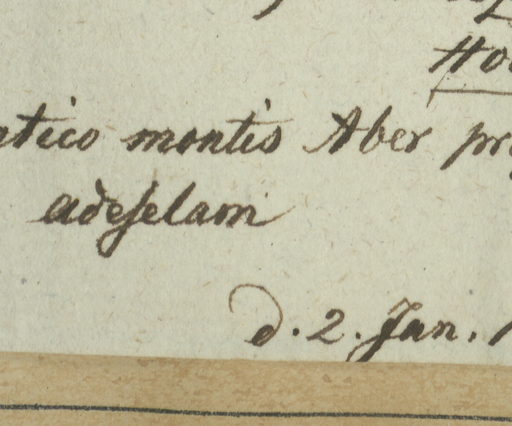 Ho
atico montis Aber pr
adeſelam
d. 2. Jan. 1